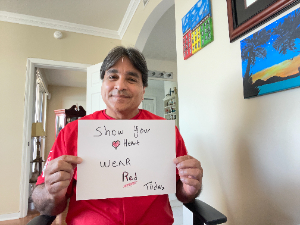 Show Your
Heart
WEAR
Red